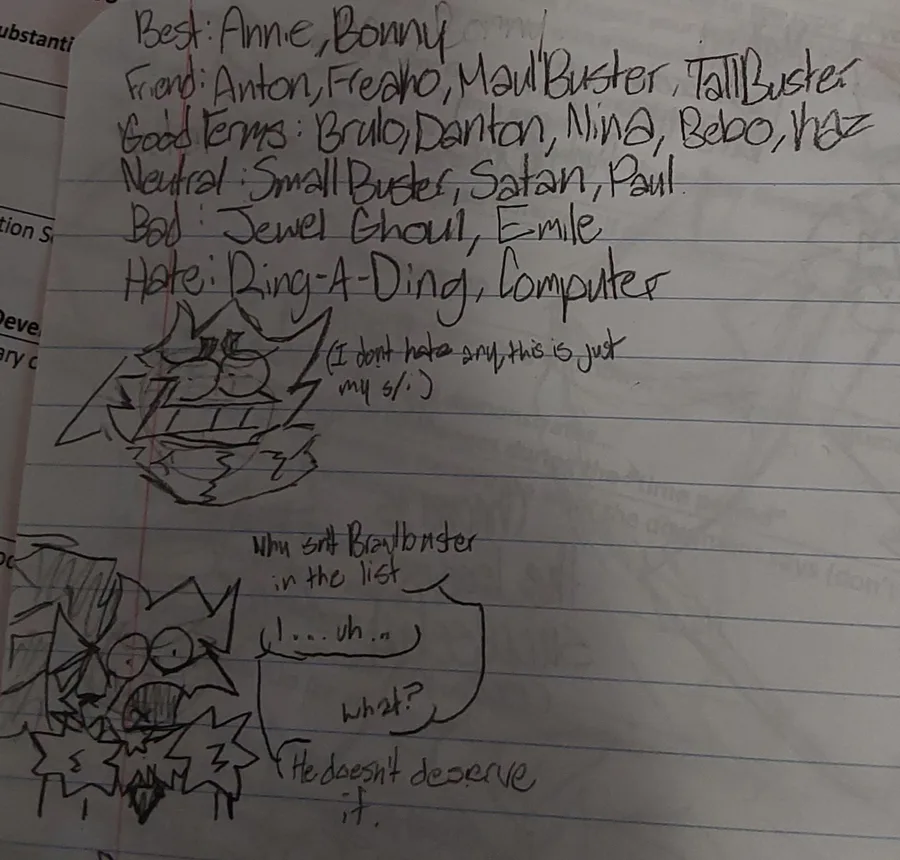 Best: Anne, Bonny
Friend: Anton, Freaho, Maul'Buster, TallBuster
Good Terms: Brulo, Danton, Nina, Bebo, Kaz
Neutral: Small Buster, Satan, Paul
Bad: Jewel Ghoul, Emile
Hate: Ring-A-Ding, Computer
(I dont hate any, this is just
my s/i)
Why isn't Brawlbuster
in the list
I...uh..
what?
He doesn't deserve
it.
ubstanti
tion S
Deve
ary c